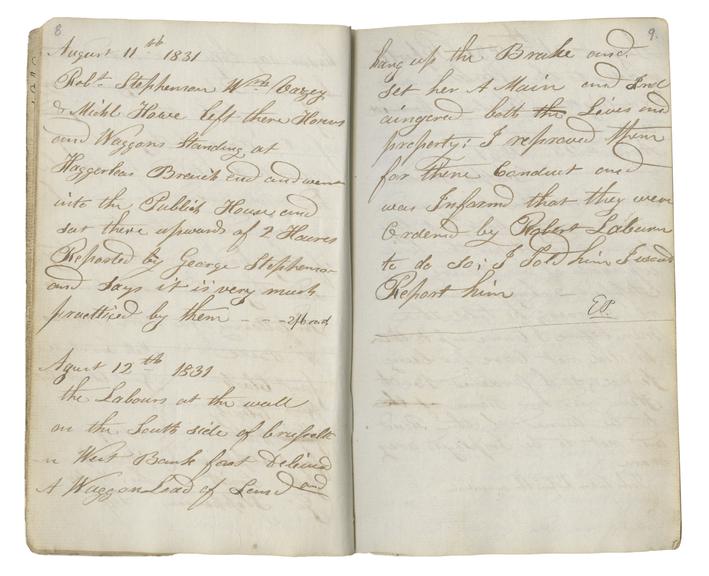 8
August 11th 1831
Robt Stephenson Wm
& Michl Howe left there Horses
and Waggons Standing at
Haggerleas Branch end and went
into the Publick House and
sat there upwards of 2 Houres
Reported by George Stephenson
and says it is very much
practised by them - - - 2/6 each
Agust 12th 1831
the Labours at the wall
on the South side of
West Bank foot
A Waggon Load of and
9.
hang up the Brake and
set her A Main and Ind
aingered both the Lives and
property; I reproved them
for There Conduct and
was Informd that they were
Ordered by Robert Laburn
to do so; I Told him I would
Report him